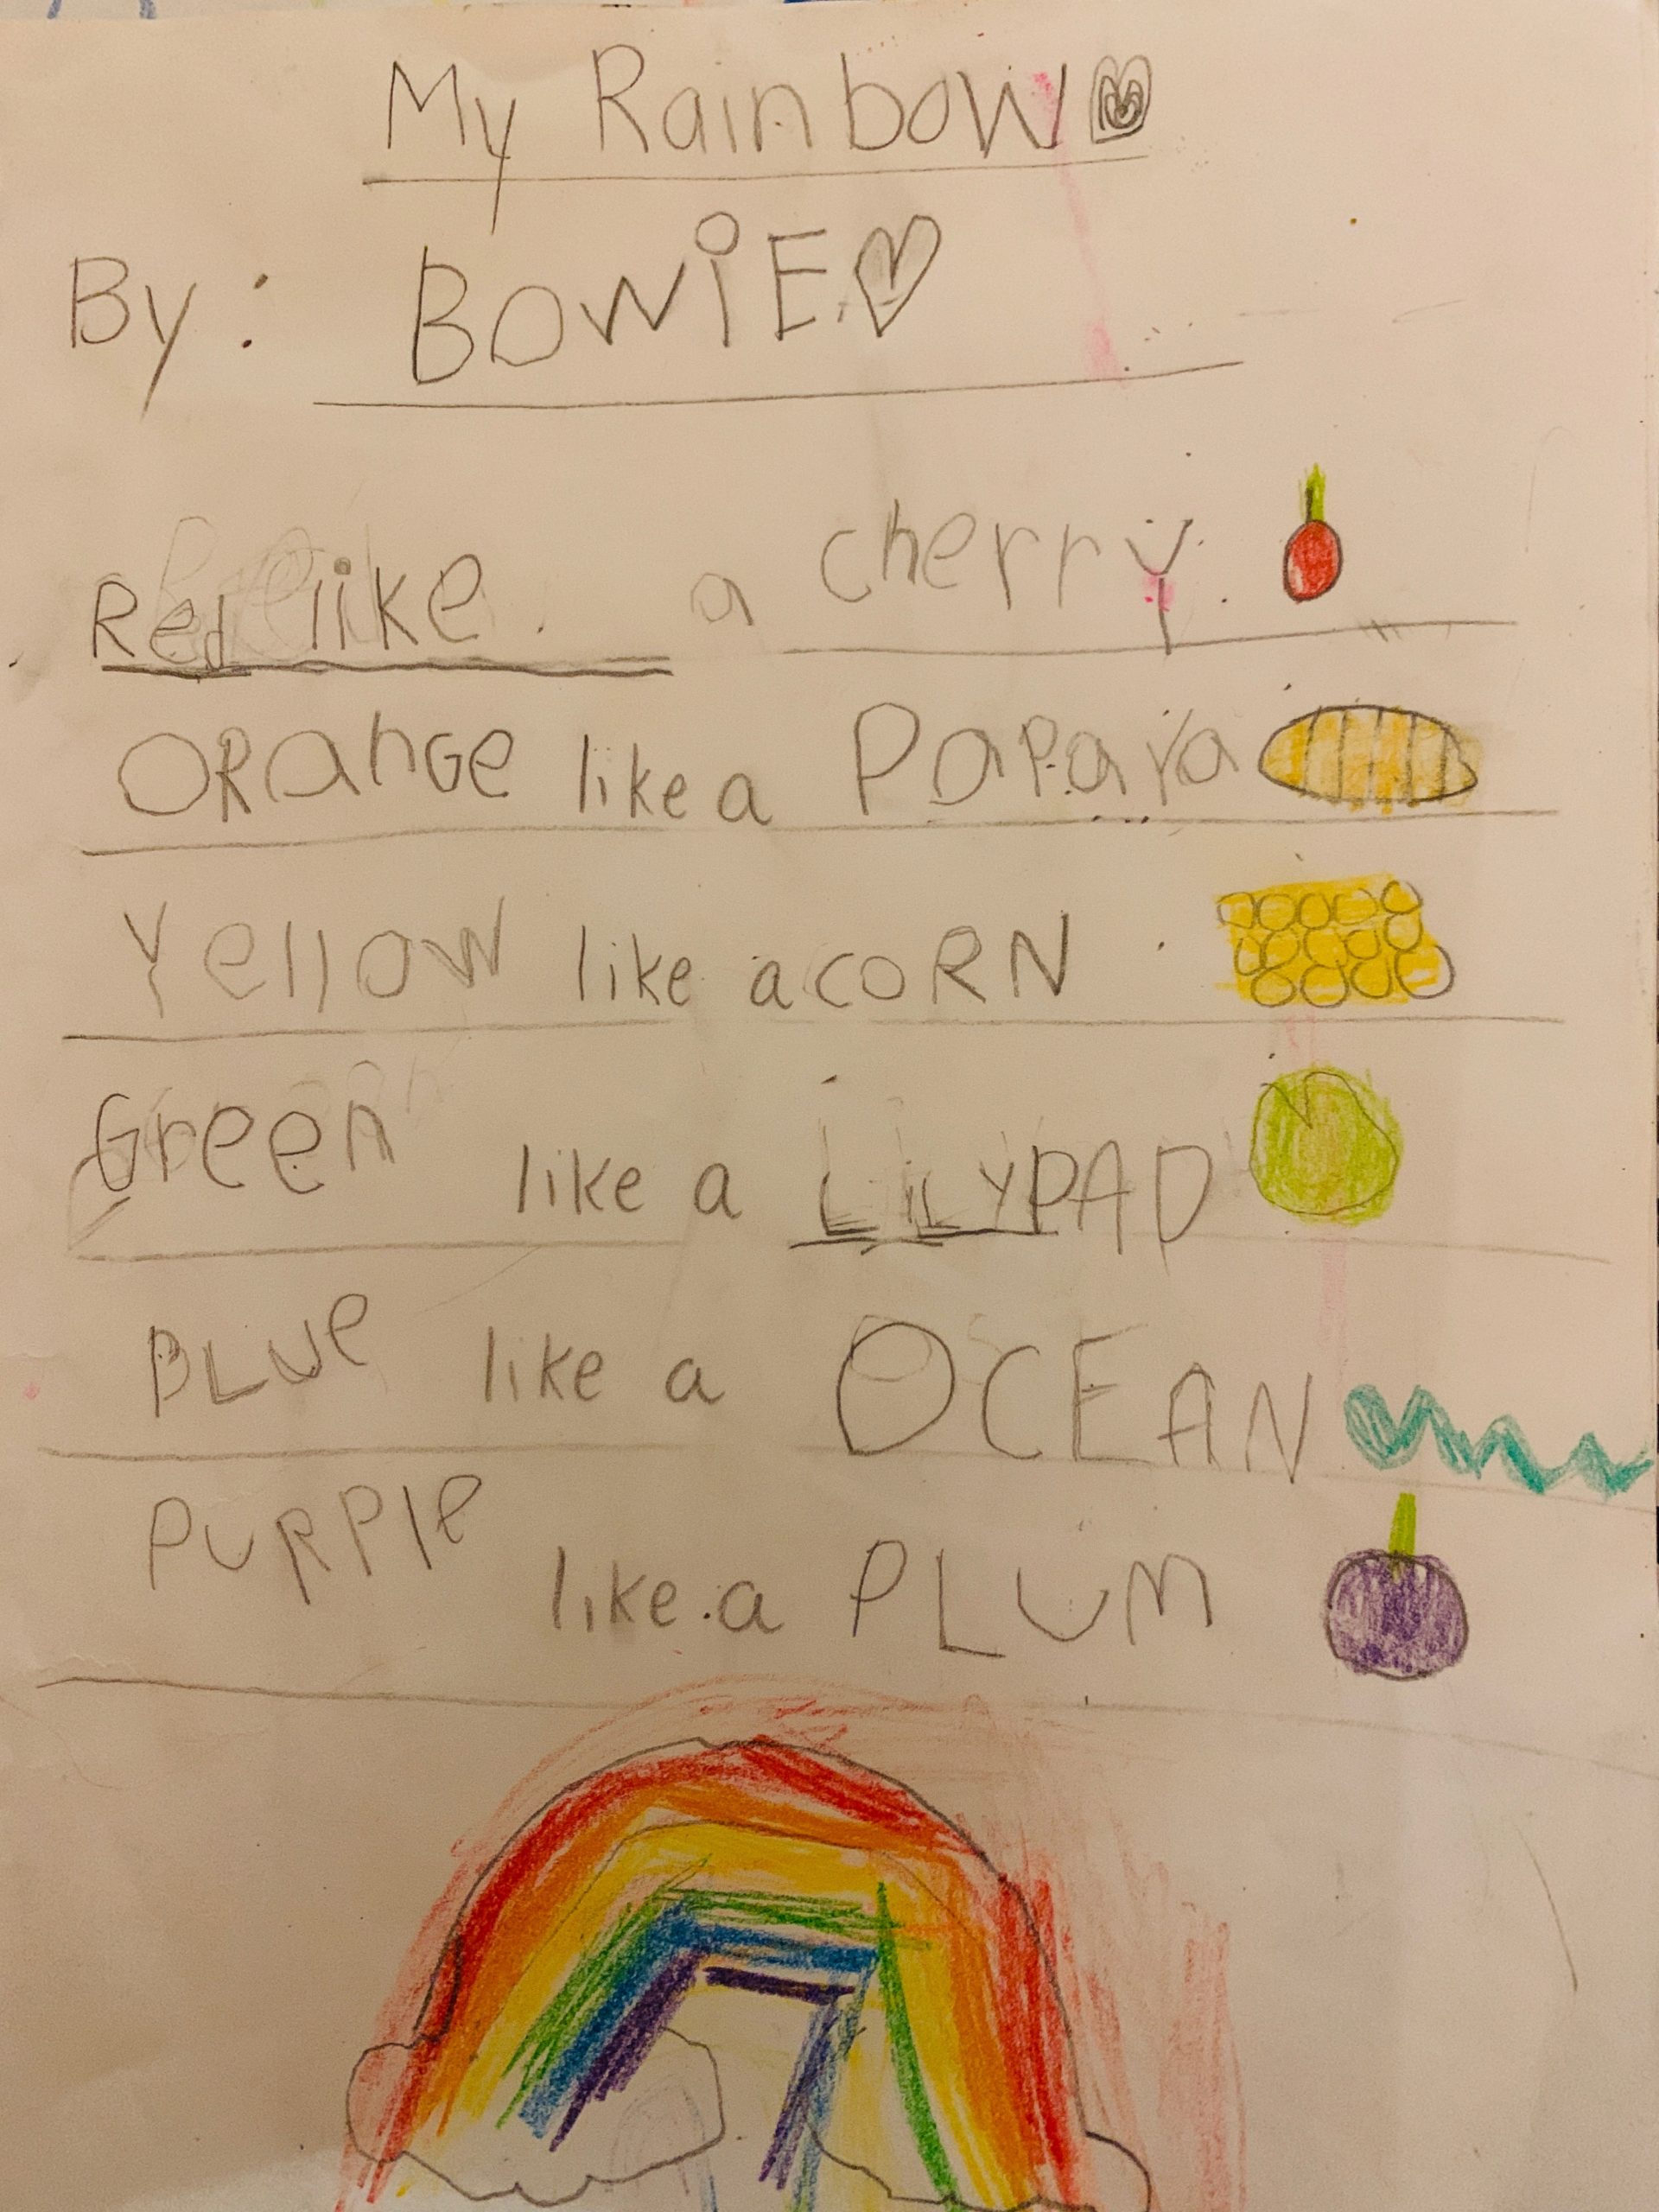 My Rainbow
By: BOWiE
Red like a cherry.
ORanGe like a PaPaYa
Yellow like a coRN
Green like a LiLYPAD
BLUe like a OCEAN
PURPle like a PLUM